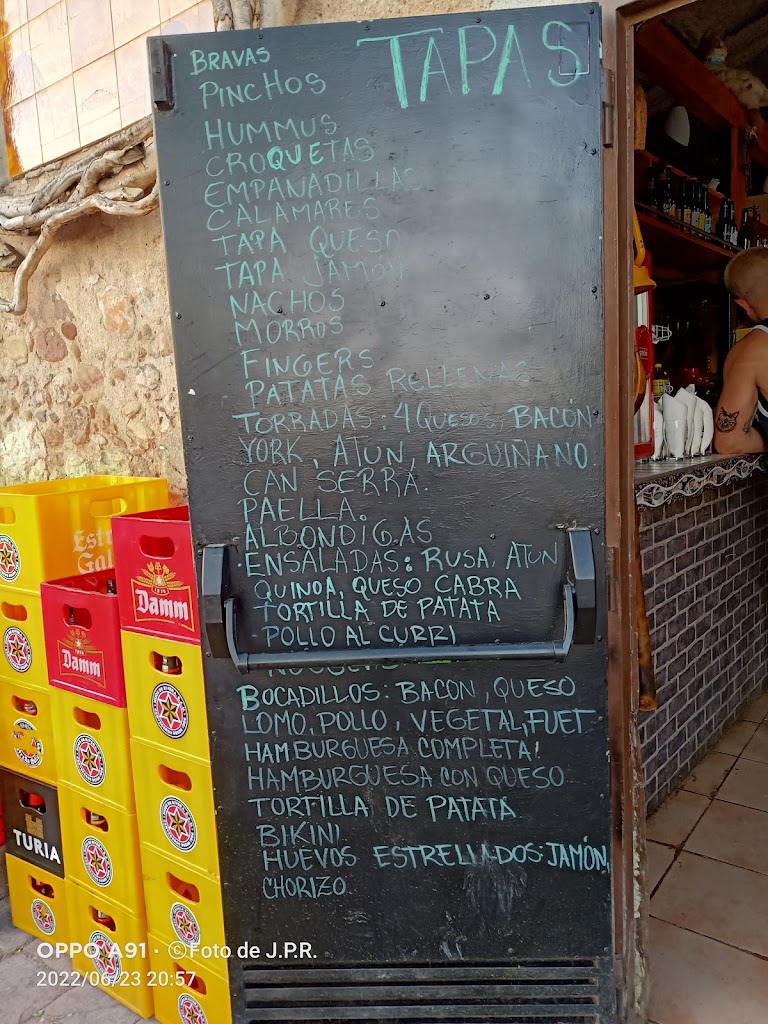 TAPAS
BRAVAS
PINCHOS
HUMMUS
CROQUETAS
EMPANADILLAS
CALAMARES
TAPA QUESO
TAPA JAMÓN
NACHOS
MORROS
FINGERS
PATATAS RELLENAS
TORRADAS: 4 QUESOS, BACÓN
YORK, ATUN, ARGUIÑANO
CAN SERRA.
PAELLA.
ALBONDIGAS
ENSALADAS: RUSA, ATUN
QUINOA, QUESO CABRA
TORTILLA DE PATATA
POLLO AL CURRI
BOCADILLOS: BACON, QUESO
LOMO, POLLO, VEGETAL, FUET
HAMBURGUESA COMPLETA!
HAMBURGUESA CON QUESO
TORTILLA DE PATATA
BIKINI
HUEVOS ESTRELLADOS: JAMÓN,
CHORIZO
Damm
Damm
TURIA
OPPO A91 · ©Foto de J.P.R.
2022/06/23 20:57